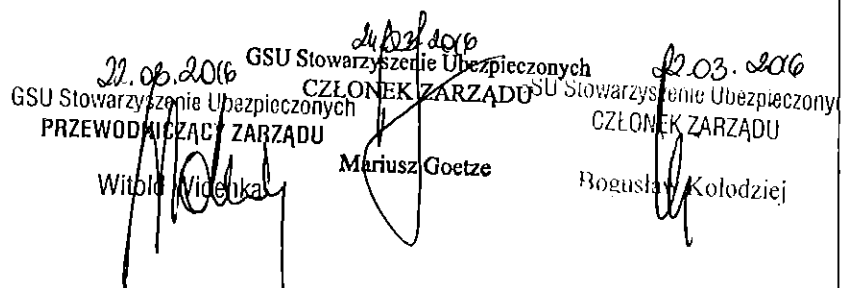 22.03.2016
GSU Stowarzyszenie Ubezpieczonych
PRZEWODNICZĄCY ZARZĄDU
Witold Widenka
24/03/2016
GSU Stowarzyszenie Ubezpieczonych
CZŁONEK ZARZĄDU
Mariusz Goetze
22.03.2016
SU Stowarzyszenie Ubezpieczony
CZŁONEK ZARZĄDU
Bogusław Kołodziej